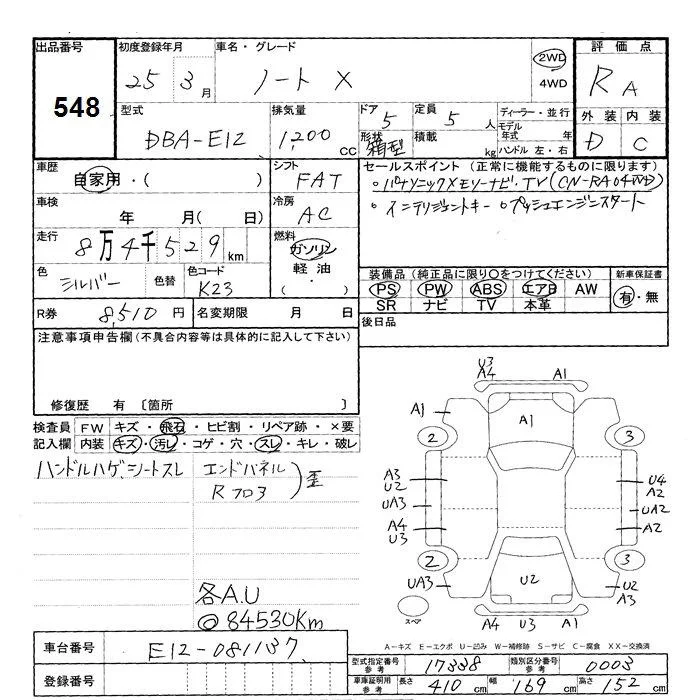 出品番号
548
初度登録年月
25 3月
車名・グレード
ノート X
2WD
4WD
評価点
RA
外装 内装
D C
型式
DBA-E12
排気量
1,200 CC
ドア
5
形状
箱型
定員
5人
積載
kg
ディーラー・並行
モデル年式 年
ハンドル 左・右
車歴
自家用・( )
シフト
FAT
車検
年 月( 日)
冷房
AC
走行
8万4千529km
燃料
ガソリン
軽油
・( )
色
シルバー
色替
色コード
K23
R券 8,510円
名変期限 月 日
セールスポイント (正常に機能するものに限ります)
○パナソニックメモリーナビ・TV(CN-RA04WD)
○インテリジェントキー ○プッシュエンジンスタート
装備品 (純正品に限り○をつけてください)
新車保証書
PS PW ABS エアB AW
SR ナビ TV 本革
有・無
後日品
注意事項申告欄(不具合内容等は具体的に記入して下さい)
修復歴 有 〔箇所 〕
検査員記入欄
FW キズ・飛石・ヒビ割・リペア跡・×要
内装 キズ・汚レ・コゲ・穴・スレ・キレ・破レ
ハンドルハゲ、シートスレ
エンドパネル
Rフロ3
歪
各A.U
◎84530Km
U3
A4 A1
A1 A1
2 3
A3
U2
U4
A2
UA3 UA2
A4
U3
A2
2 3
UA3 U2 U2
A3
スペア
A4 U3 A1
A-キズ E-エクボ U-凹み W-補修跡 S-サビ C-腐食 XX-交換済
車台番号 E12-081137
登録番号
型式指定番号 参考 17338
類別区分番号 参考 0003
車庫証明用 参考 長さ 410cm 幅 169cm 高さ 152cm